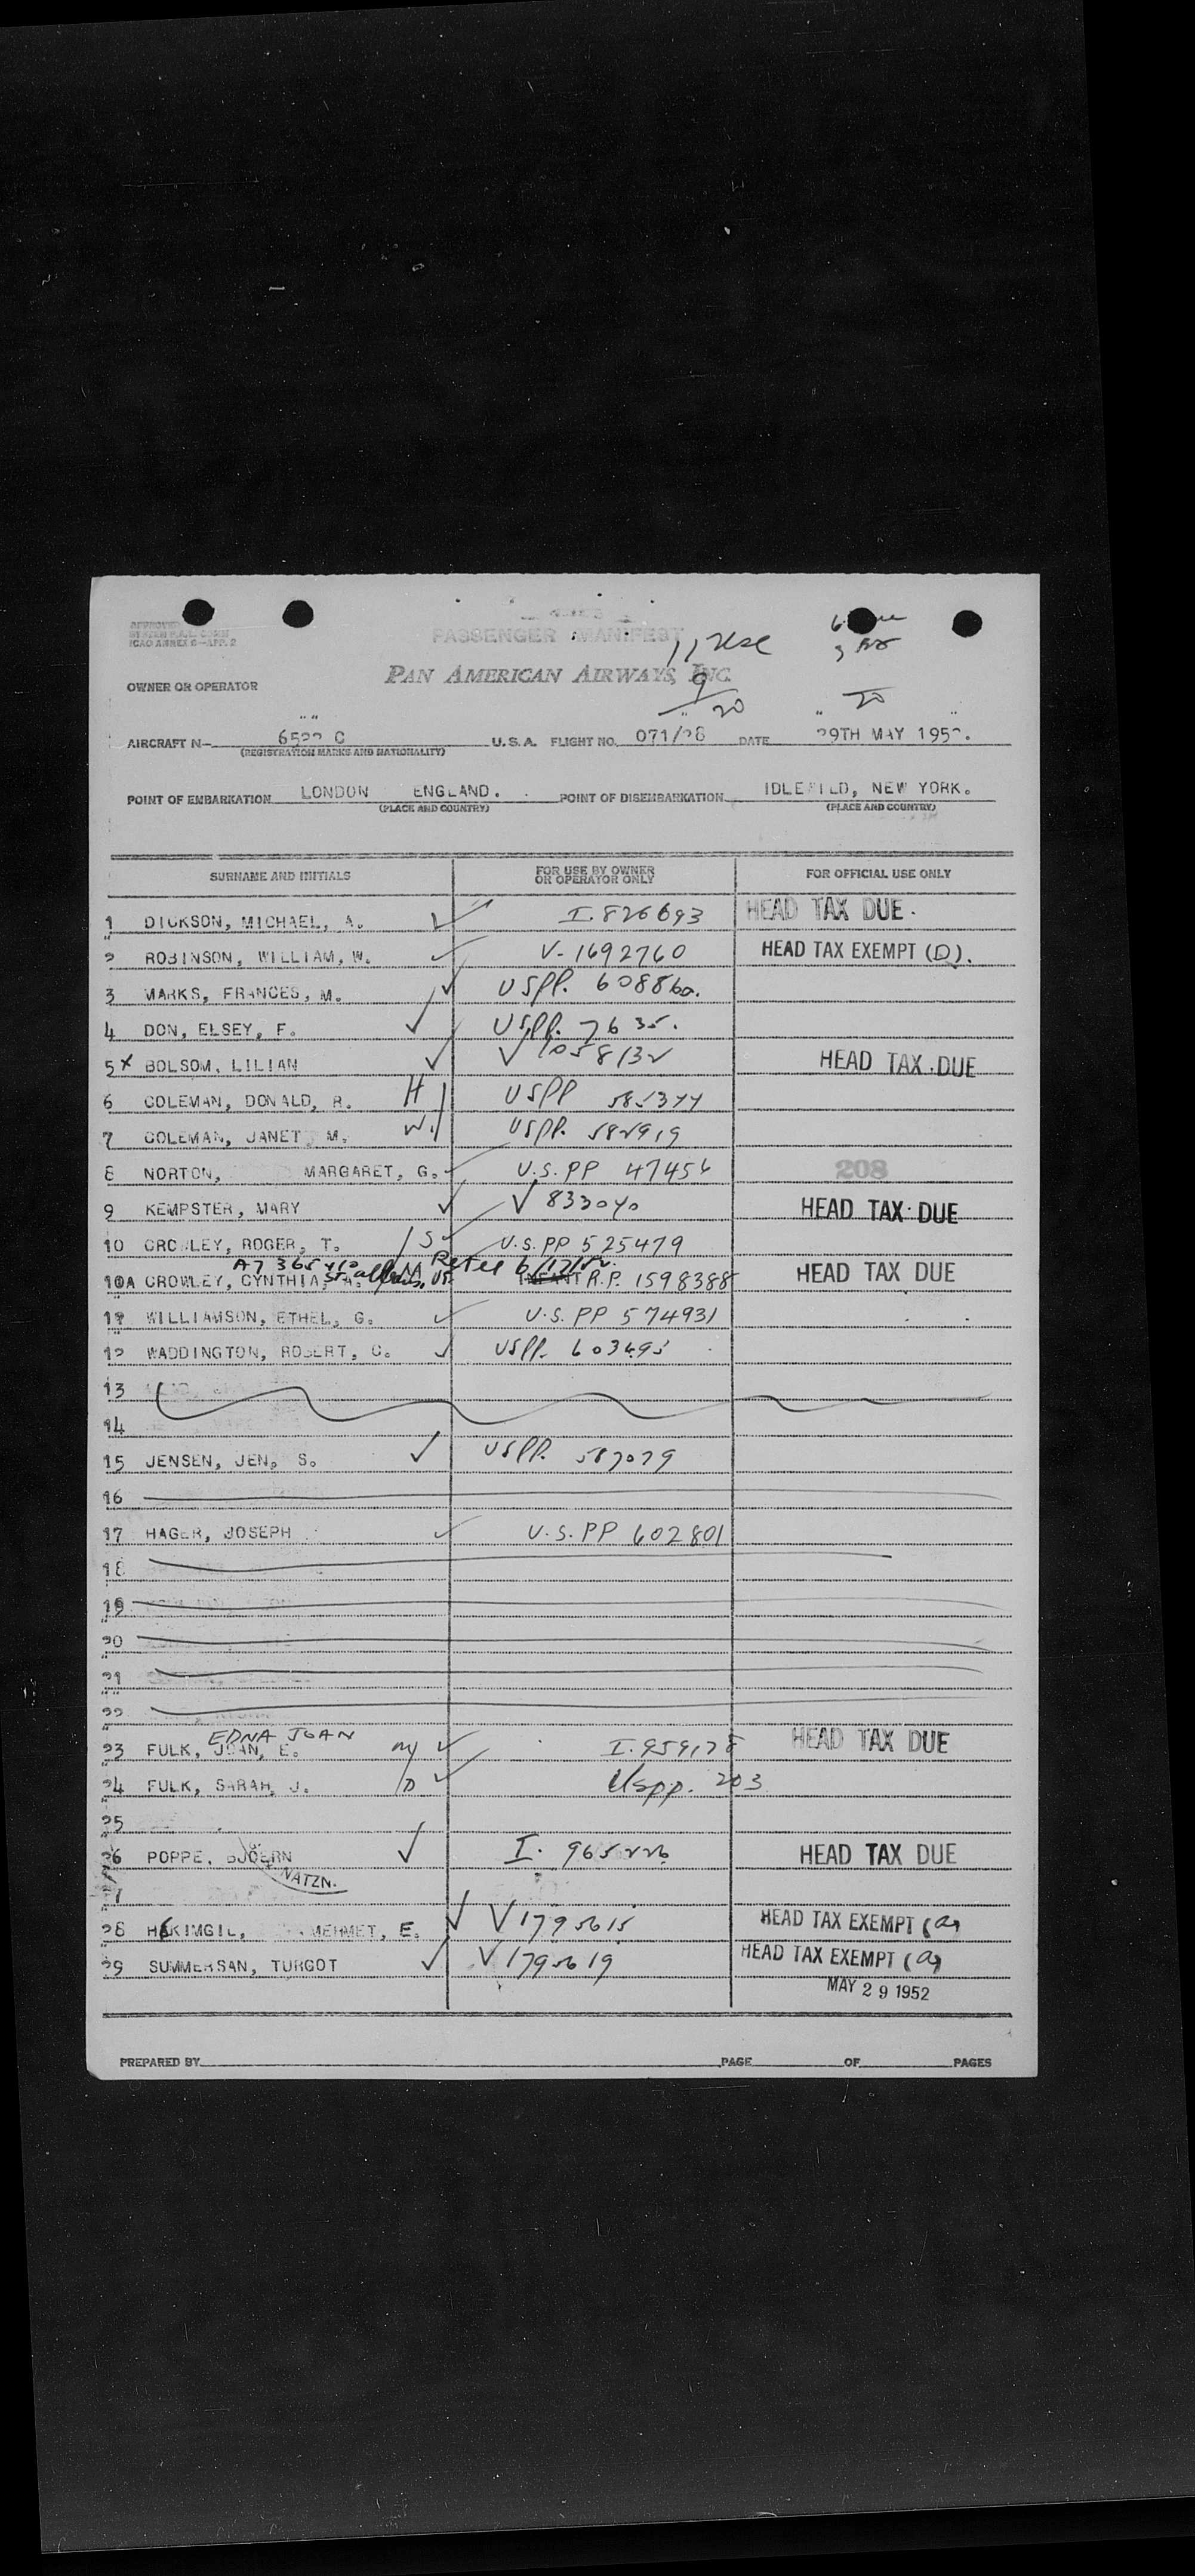 APPROVED
ICAO ANNEX 9-APP. 2
PASSENGER MANIFEST
11 USC
PAN AMERICAN AIRWAYS, INC.
9
20
20
OWNER OR OPERATOR
AIRCRAFT N- 6522 C U.S.A. FLIGHT NO. 071/28 DATE 29TH MAY 1952.
(REGISTRATION MARKS AND NATIONALITY)
POINT OF EMBARKATION LONDON ENGLAND. POINT OF DISEMBARKATION IDLEWILD, NEW YORK.
(PLACE AND COUNTRY) (PLACE AND COUNTRY)
SURNAME AND INITIALS FOR USE BY OWNER OR OPERATOR ONLY FOR OFFICIAL USE ONLY
1 DICKSON, MICHAEL, A. I. 826693 HEAD TAX DUE.
2 ROBINSON, WILLIAM, W. V-1692760 HEAD TAX EXEMPT (D).
3 MARKS, FRANCES, M. USPP. 608860.
4 DON, ELSEY, F. USPP. 7635.
5 X BOLSOM, LILIAN V 1058132 HEAD TAX DUE
6 COLEMAN, DONALD, R. H USPP 585344
7 COLEMAN, JANET, M. W. USPP. 582919
8 NORTON, MARGARET, G. U.S. PP 47456 208
9 KEMPSTER, MARY V 833040 HEAD TAX DUE
10 CROWLEY, ROGER, T. S U.S. PP 525479
A7 365 410 St. Albans, Vt. 6/12/52.
10A CROWLEY, CYNTHIA, A. INFANT R.P. 1598388 HEAD TAX DUE
11 WILLIAMSON, ETHEL, G. U.S. PP 574931
12 WADDINGTON, ROBERT, C. USPP. 603495
13
14
15 JENSEN, JEN, S. USPP. 587079
16
17 HAGER, JOSEPH U.S. PP 602801
18
19
20
21
22
EDNA JOAN
23 FULK, JOAN, E. M I. 959178 HEAD TAX DUE
24 FULK, SARAH, J. D USPP. 203
25
26 POPPE, BJOERN I. 965226 HEAD TAX DUE
NATZN.
28 HEKIMGIL, MEHMET, E. V 1795615 HEAD TAX EXEMPT (a)
29 SUMMERSAN, TURGOT V 1795619 HEAD TAX EXEMPT (a)
MAY 29 1952
PREPARED BY PAGE OF PAGES